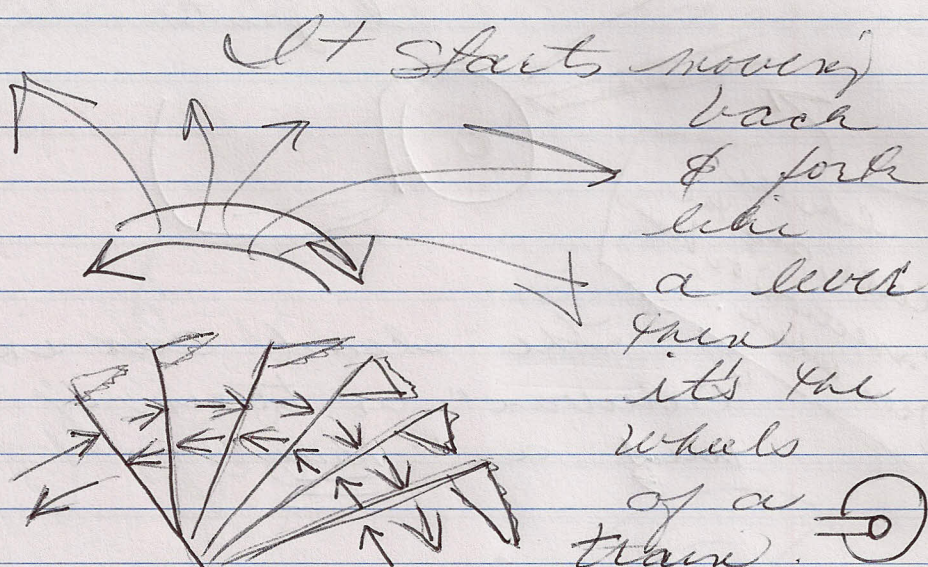 It starts moving
back
& forth
like
a lever
then
it's the
wheels
of a
train.